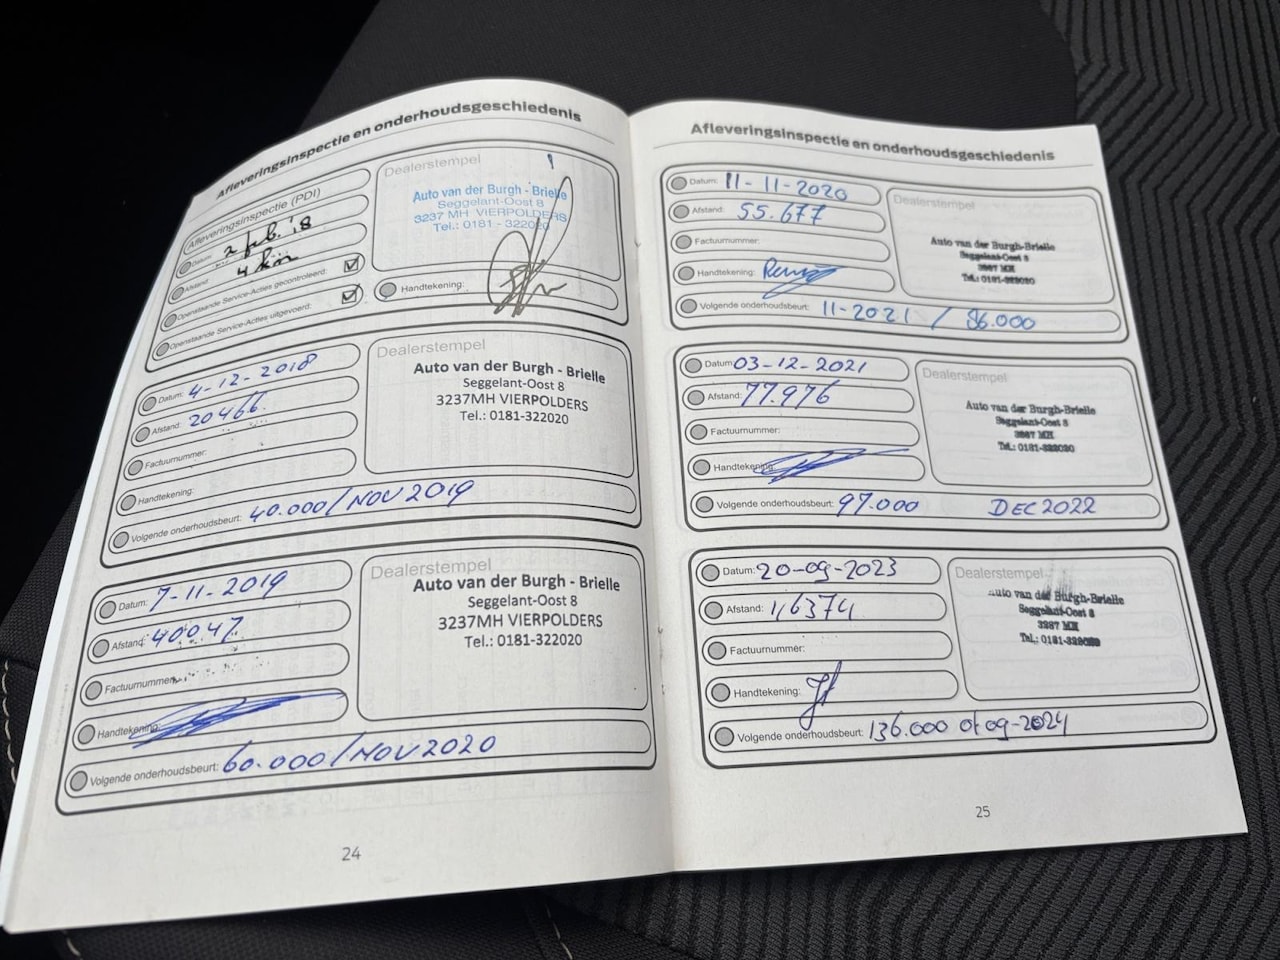 Afleveringsinspectie en onderhoudsgeschiedenis
Afleveringsinspectie (PDI)
Datum: 2 feb. '18
Afstand: 4 km
Openstaande Service-Acties gecontroleerd:
Openstaande Service-Acties uitgevoerd:
Dealerstempel
Auto van der Burgh - Brielle
Seggelant-Oost 8
3237 MH VIERPOLDERS
Tel.: 0181 - 322020
Handtekening:
Datum: 4-12-2018
Afstand: 20466
Factuurnummer:
Handtekening:
Volgende onderhoudsbeurt: 40.000/NOV 2019
Dealerstempel
Auto van der Burgh - Brielle
Seggelant-Oost 8
3237MH VIERPOLDERS
Tel.: 0181-322020
Datum: 7-11-2019
Afstand: 40047
Factuurnummer:
Handtekening:
Volgende onderhoudsbeurt: 60.000/NOV 2020
Dealerstempel
Auto van der Burgh - Brielle
Seggelant-Oost 8
3237MH VIERPOLDERS
Tel.: 0181-322020
24
Afleveringsinspectie en onderhoudsgeschiedenis
Datum: 11-11-2020
Afstand: 55.677
Factuurnummer:
Handtekening:
Volgende onderhoudsbeurt: 11-2021 / 86.000
Dealerstempel
Auto van der Burgh-Brielle
Seggelant-Oost 8
Tel.: 0181-322020
Datum: 03-12-2021
Afstand: 77.976
Factuurnummer:
Handtekening:
Volgende onderhoudsbeurt: 97.000 DEC 2022
Dealerstempel
Auto van der Burgh-Brielle
Seggelant-Oost 8
Tel.: 0181-322020
Datum: 20-09-2023
Afstand: 116374
Factuurnummer:
Handtekening:
Volgende onderhoudsbeurt: 136.000 of 09-2024
Dealerstempel
Auto van der Burgh-Brielle
Seggelant-Oost 8
Tel.: 0181-322020
25